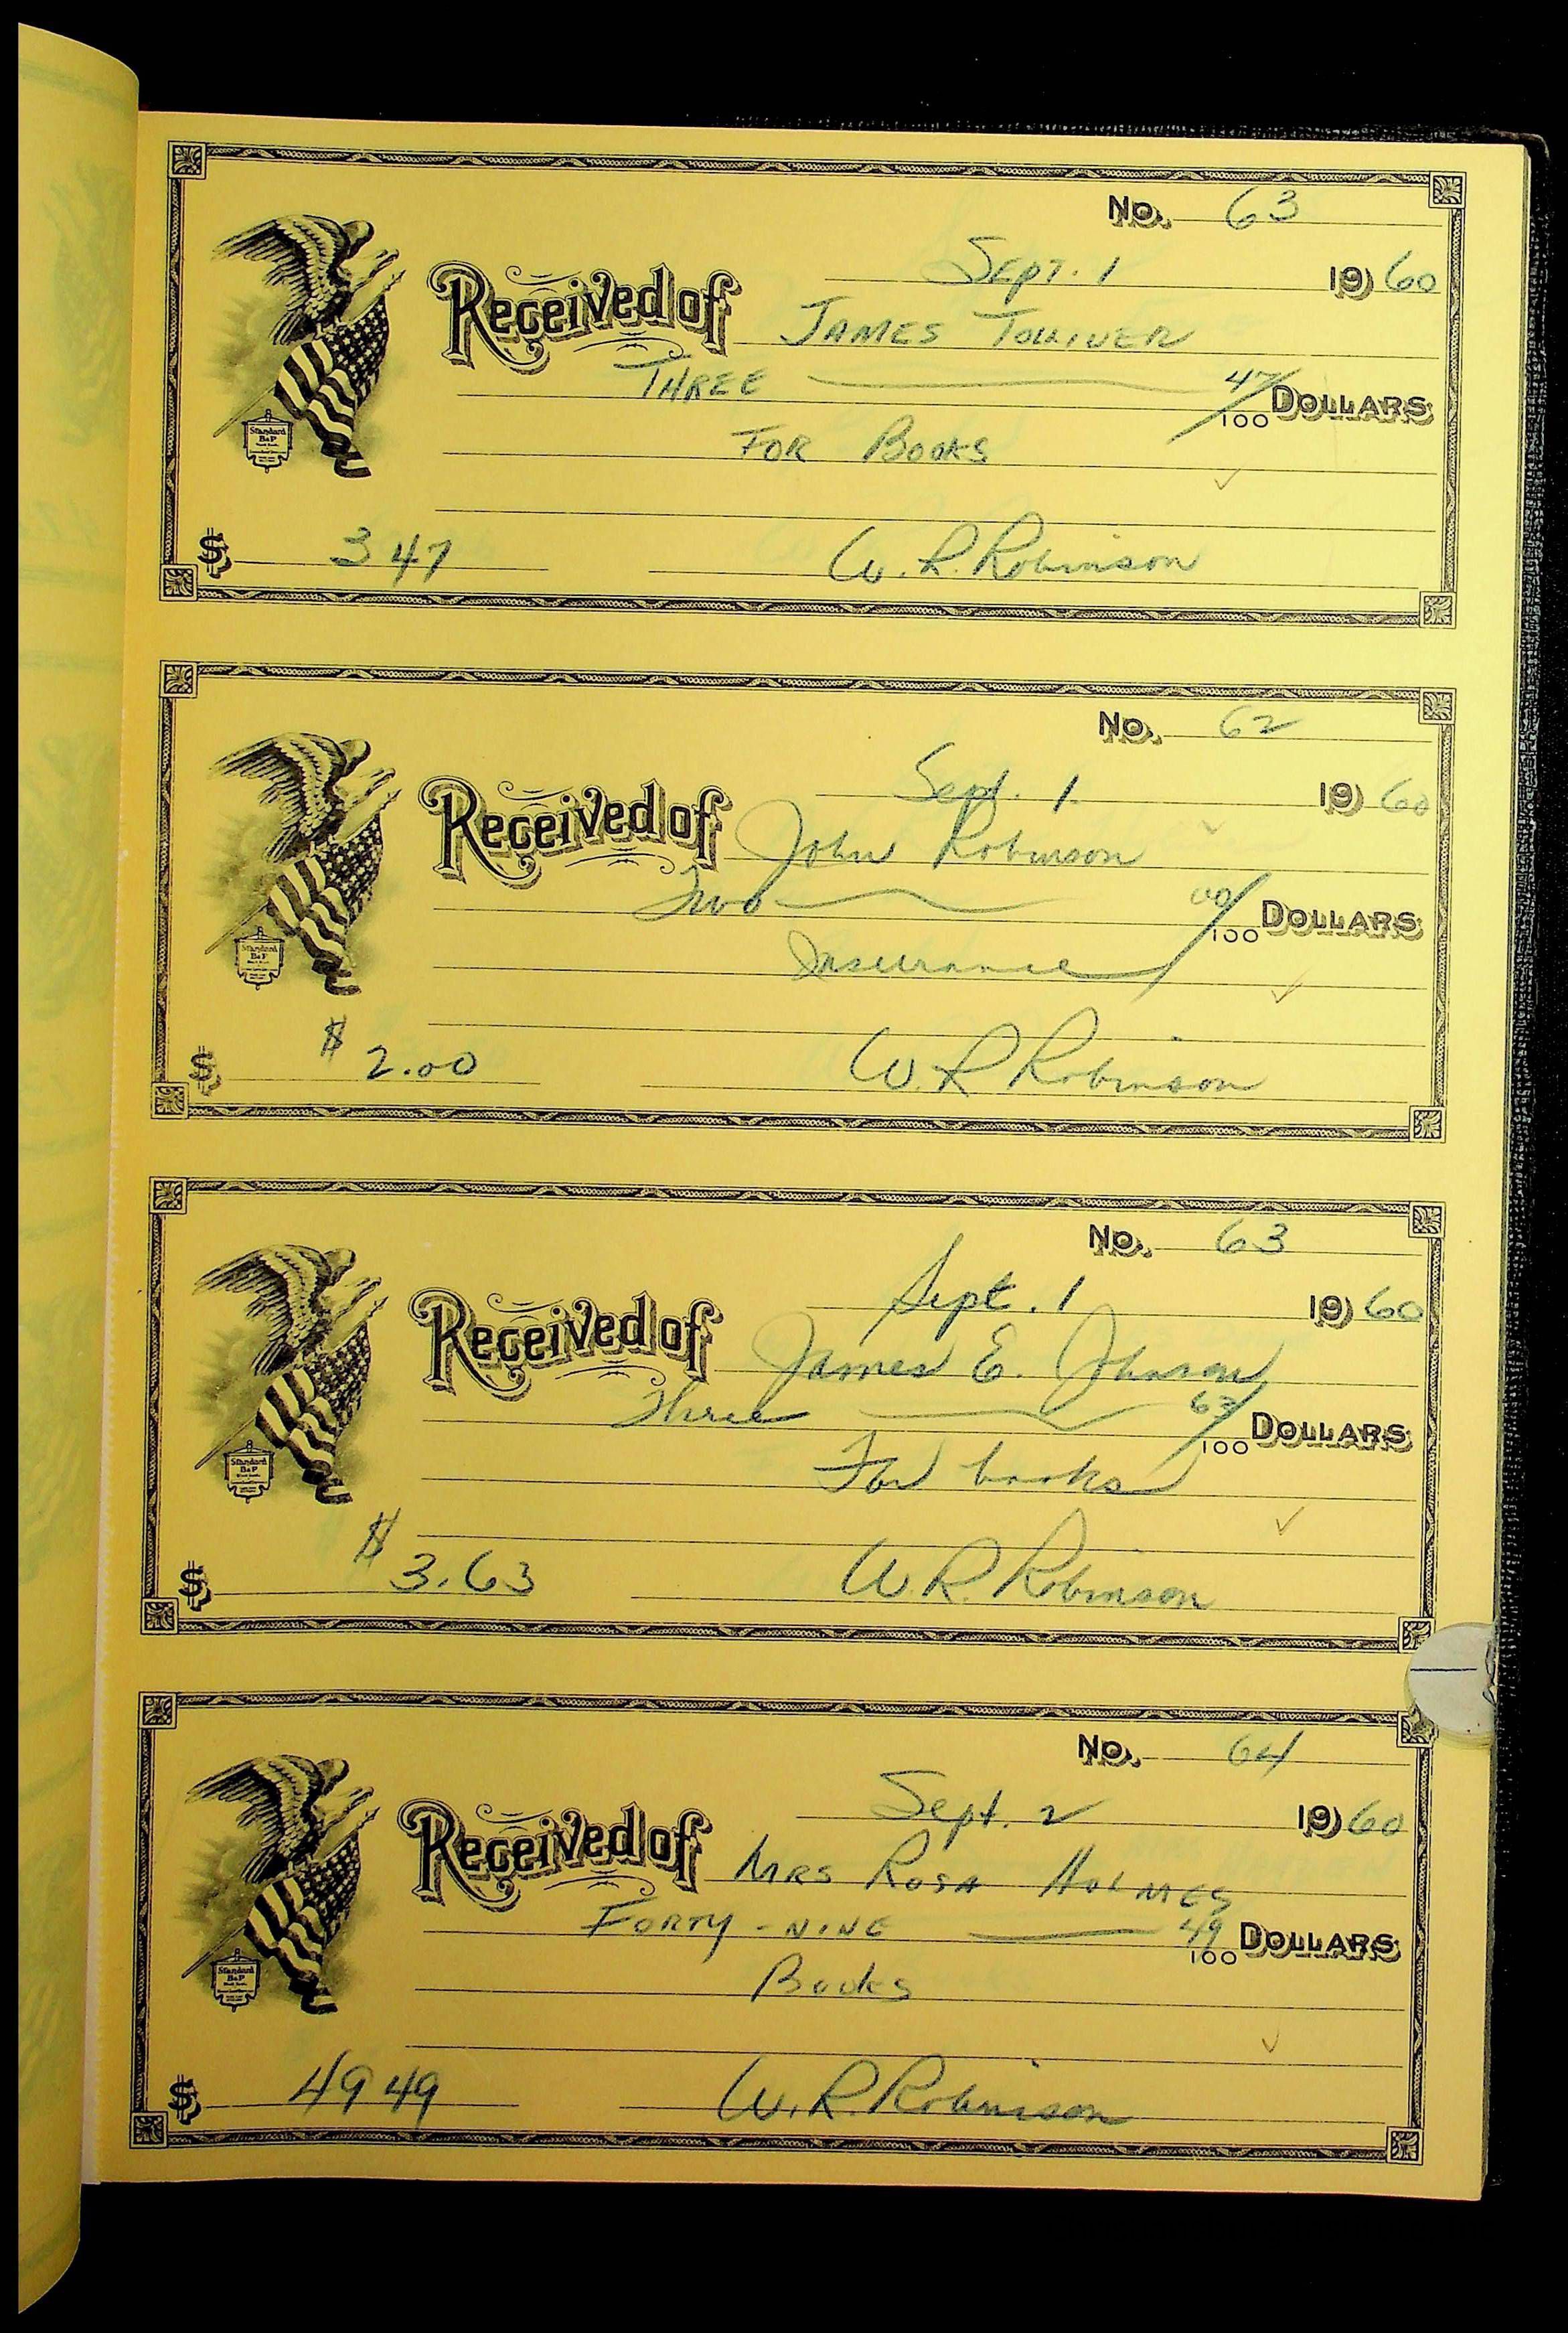 No. 63
Sept. 1 1960
Received of James Tolliver
Three 47/100 Dollars
For Books
Standard
B&P
$ 3 47 W. R. Robinson
No. 62
Sept. 1. 1960
Received of John Robinson
Two 00/100 Dollars
Insurance
Standard
B&P
$
$ 2.00 W. R Robinson
No. 63
Sept. 1 1960
Received of James E. Johnson
Three 63/100 Dollars
For books
Standard
B&P
$
$ 3.63 W. R. Robinson
No. 64
Sept. 2 1960
Received of Mrs Rosa Holmes
Forty-nine 49/100 Dollars
Books
Standard
B&P
$ 49 49 W. R. Robinson